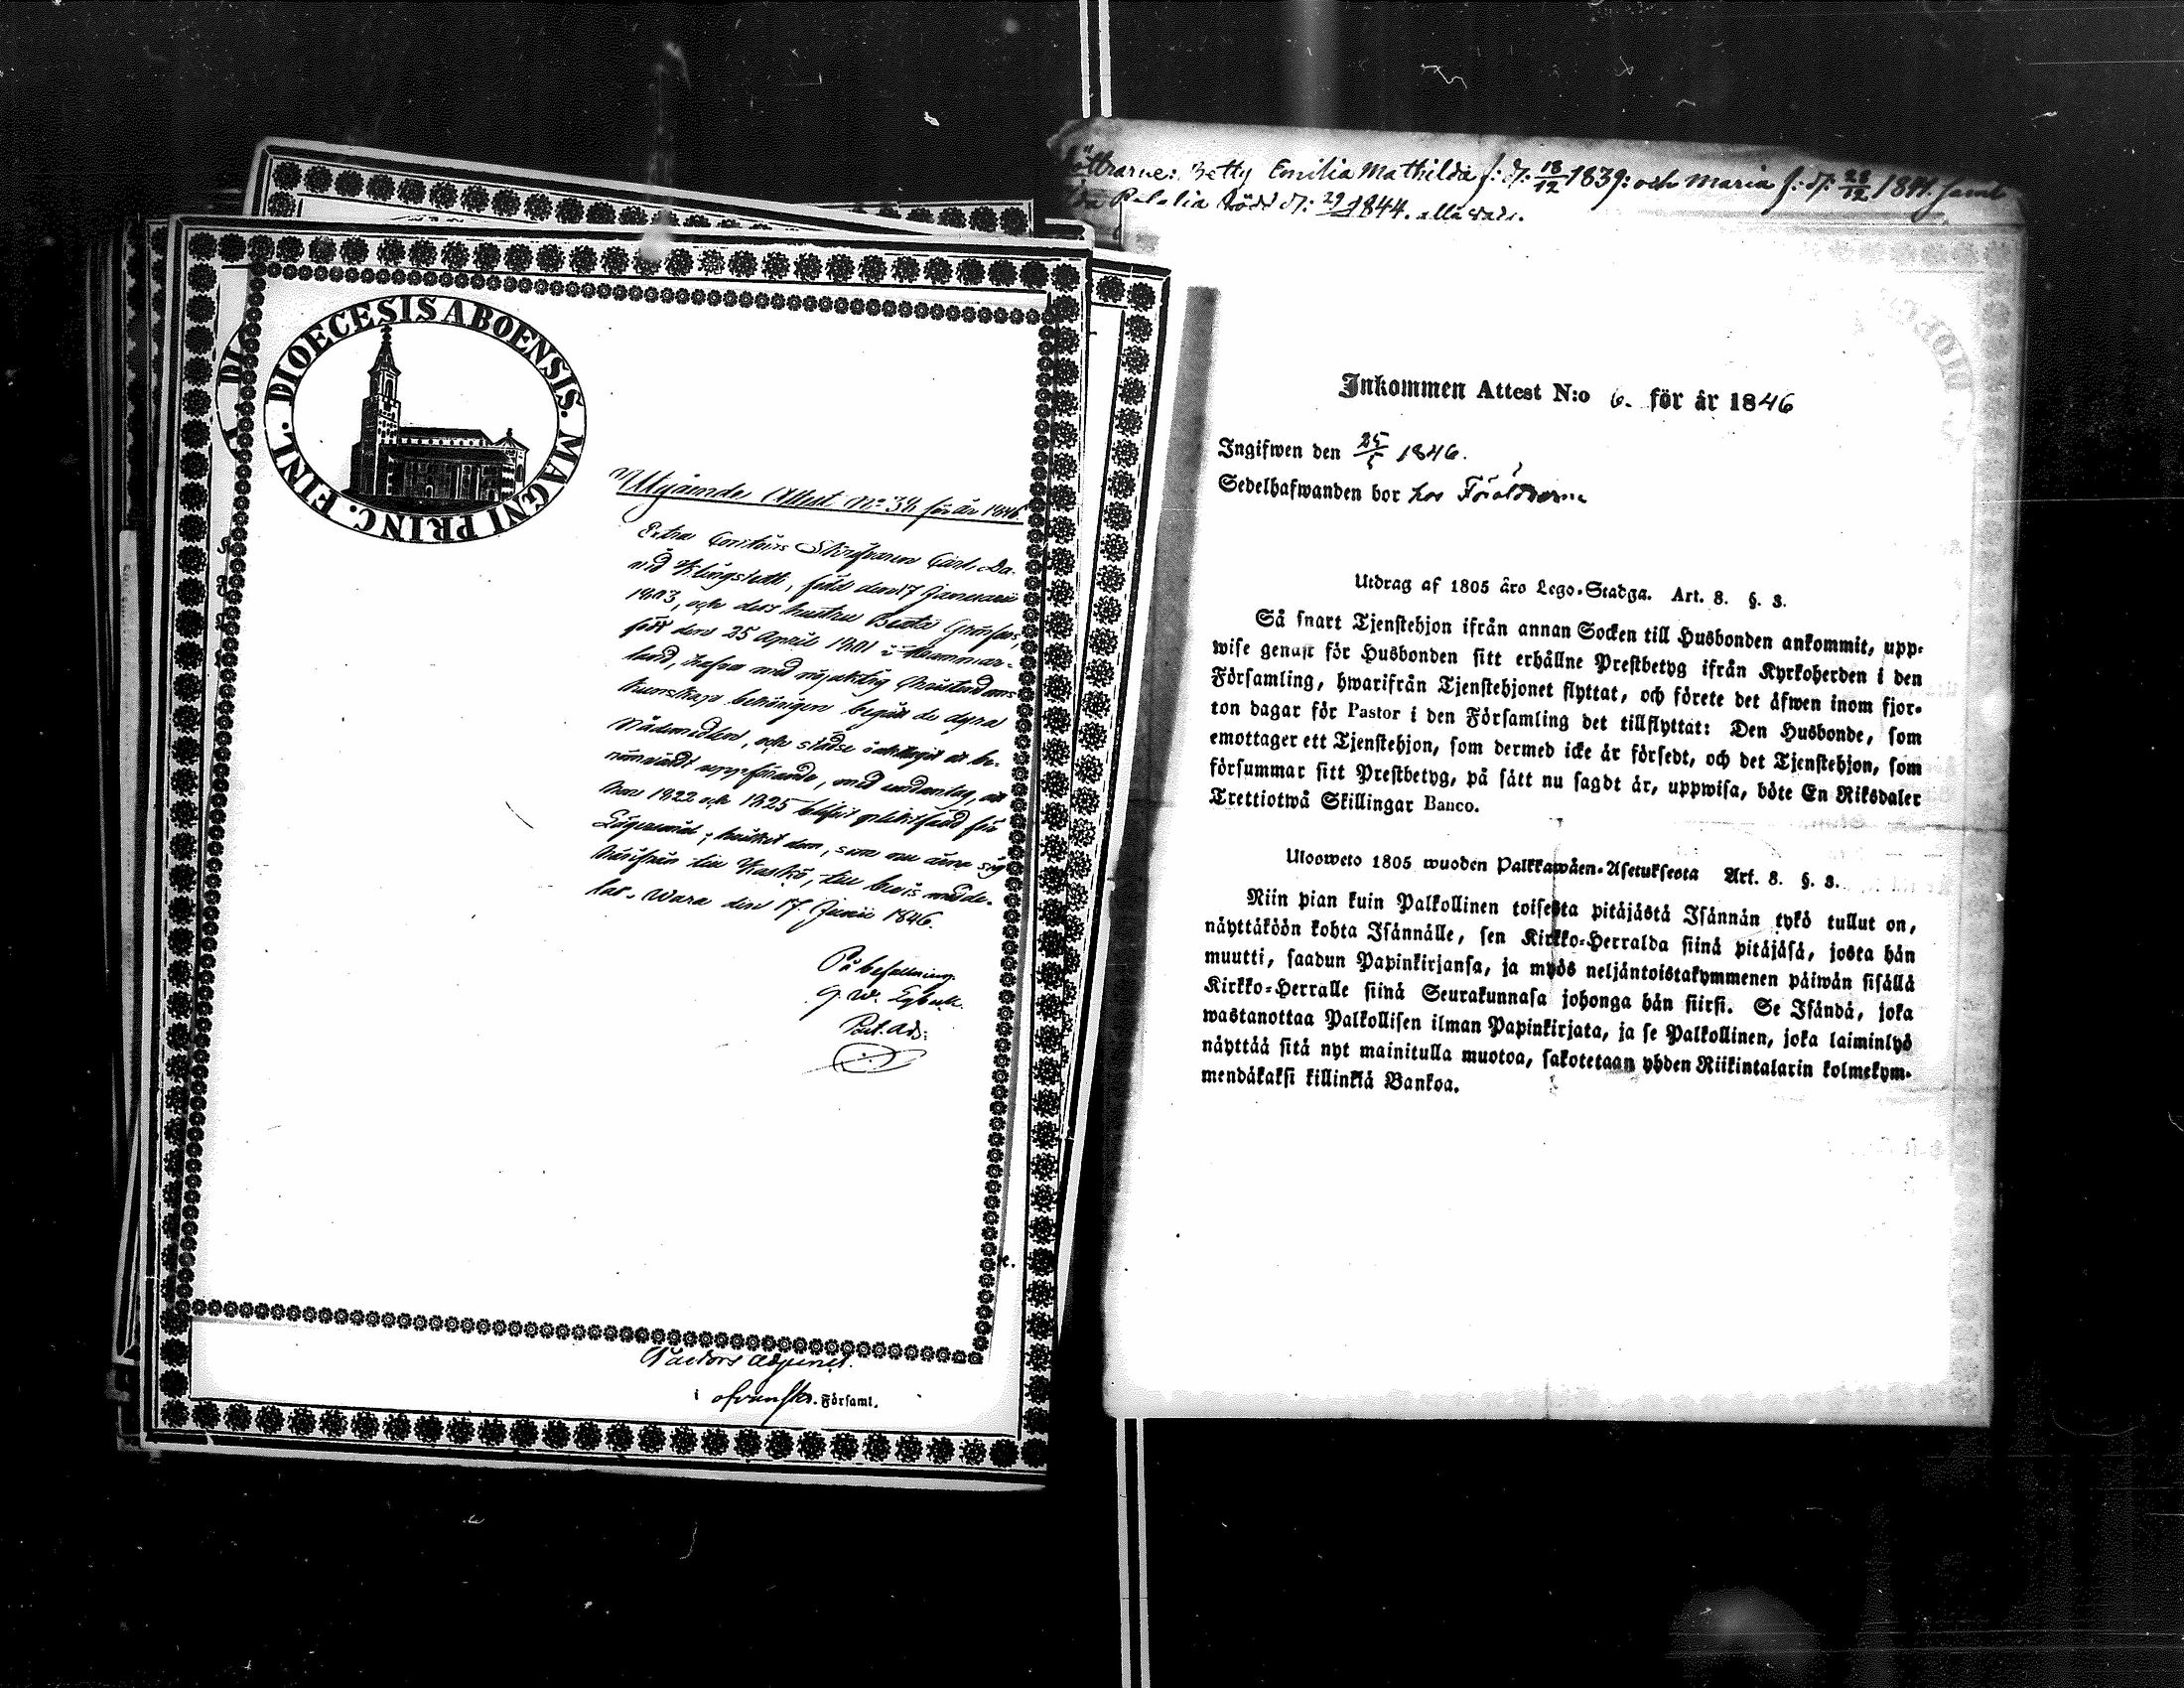 DIOECESIS ABOENSIS. MAGNI PRINC. FINL.
Utgående Attest No 34 för år 1846
Extra Contoirs Skrifvaren Carl Da-
vid Klingstedt, född den 17 Januarii
1803, och dess hustru Beata Grönfors,
född den 25 Aprill 1801 i Hammar-
land, hafva med nöjaktig Christendoms
kunskap behörigen begått de dyra
Nådemedlen, och städse iakttagit ett be-
römvärdt uppförande, med undantag, att
hon 1822 och 1825 blifvit sakfälld för
Lägersmål; hvilket dem, som nu ärna sig
härifrån till Kaskö, till bevis medde-
las. Wasa den 17 Junii 1846.
På befallning
G. W.
Past. Adj:
Pastors Adjunct.
i Svenska Församl.
Döttrarne: Betty Emilia Mathilda f: d: 18/12 1839: och Maria f: d: 28/12 1841. samt
född d: 29/ 1844. alla vacc.
Inkommen Attest N:o 6. för år 1846
Ingifwen den 25/5 1846.
Sedelhafwanden bor hos Föräldrarne
Utdrag af 1805 års Lego-Stadga. Art. 8. §. 3.
Så snart Tjenstehjon ifrån annan Socken till Husbonden ankommit, upp-
wise genast för Husbonden sitt erhållne Prestbetyg ifrån Kyrkoherden i den
Församling, hwarifrån Tjenstehjonet flyttat, och förete det äfwen inom fjor-
ton dagar för Pastor i den Församling det tillflyttat: Den Husbonde, som
emottager ett Tjenstehjon, som dermed icke är försedt, och det Tjenstehjon, som
försummar sitt Prestbetyg, på sätt nu sagdt är, uppwisa, böte En Riksdaler
Trettiotwå Skillingar Banco.
Ulosweto 1805 wuoden Palkkawäen-Asetuksesta Art. 8. §. 3.
Niin pian kuin Palkollinen toisesta pitäjästä Isännän tykö tullut on,
näyttäköön kohta Isännälle, sen Kirkko-Herralda siinä pitäjäsä, josta hän
muutti, saadun Papinkirjansa, ja myös neljäntoistakymmenen päiwän sisällä
Kirkko-Herralle siinä Seurakunnasa johonga hän siirsi. Se Isändä, joka
wastanottaa Palkollisen ilman Papinkirjata, ja se Palkollinen, joka laiminlyö
näyttää sitä nyt mainitulla muotoa, sakotetaan yhden Riikintalarin kolmekym-
mendäkaksi killinkiä Bankoa.